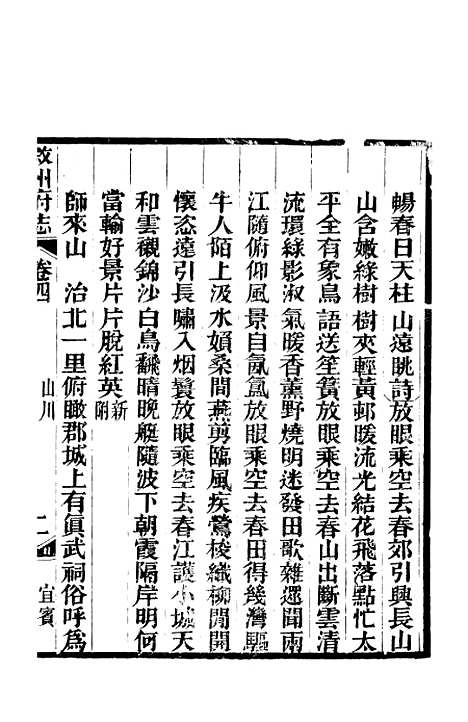 暢春日天柱山遠眺詩放眼乘空去春郊引興長山
山含嫩綠樹樹夾輕黃邨暖流光結花飛落點忙太
平全有象鳥語送笙簧放眼乘空去春山出斷雲清
流環綠影淑氣暖香薰野燒明迷發田歌雜遝聞兩
江隨俯仰風景自氤氳放眼乘空去春田得幾灣驅
牛人陌上汲水婦桑間燕剪臨風疾鶯梭織柳閒開
懷恣遠引長嘯入烟鬟放眼乘空去春江護小城天
和雲襯錦沙白鳥翻晴晚艇隨波下朝霞隔岸明何
當輸好景片片脫紅英新附
師來山　治北一里俯瞰郡城上有眞武祠俗呼爲
敘州府志
卷四
山川
二
宜賓